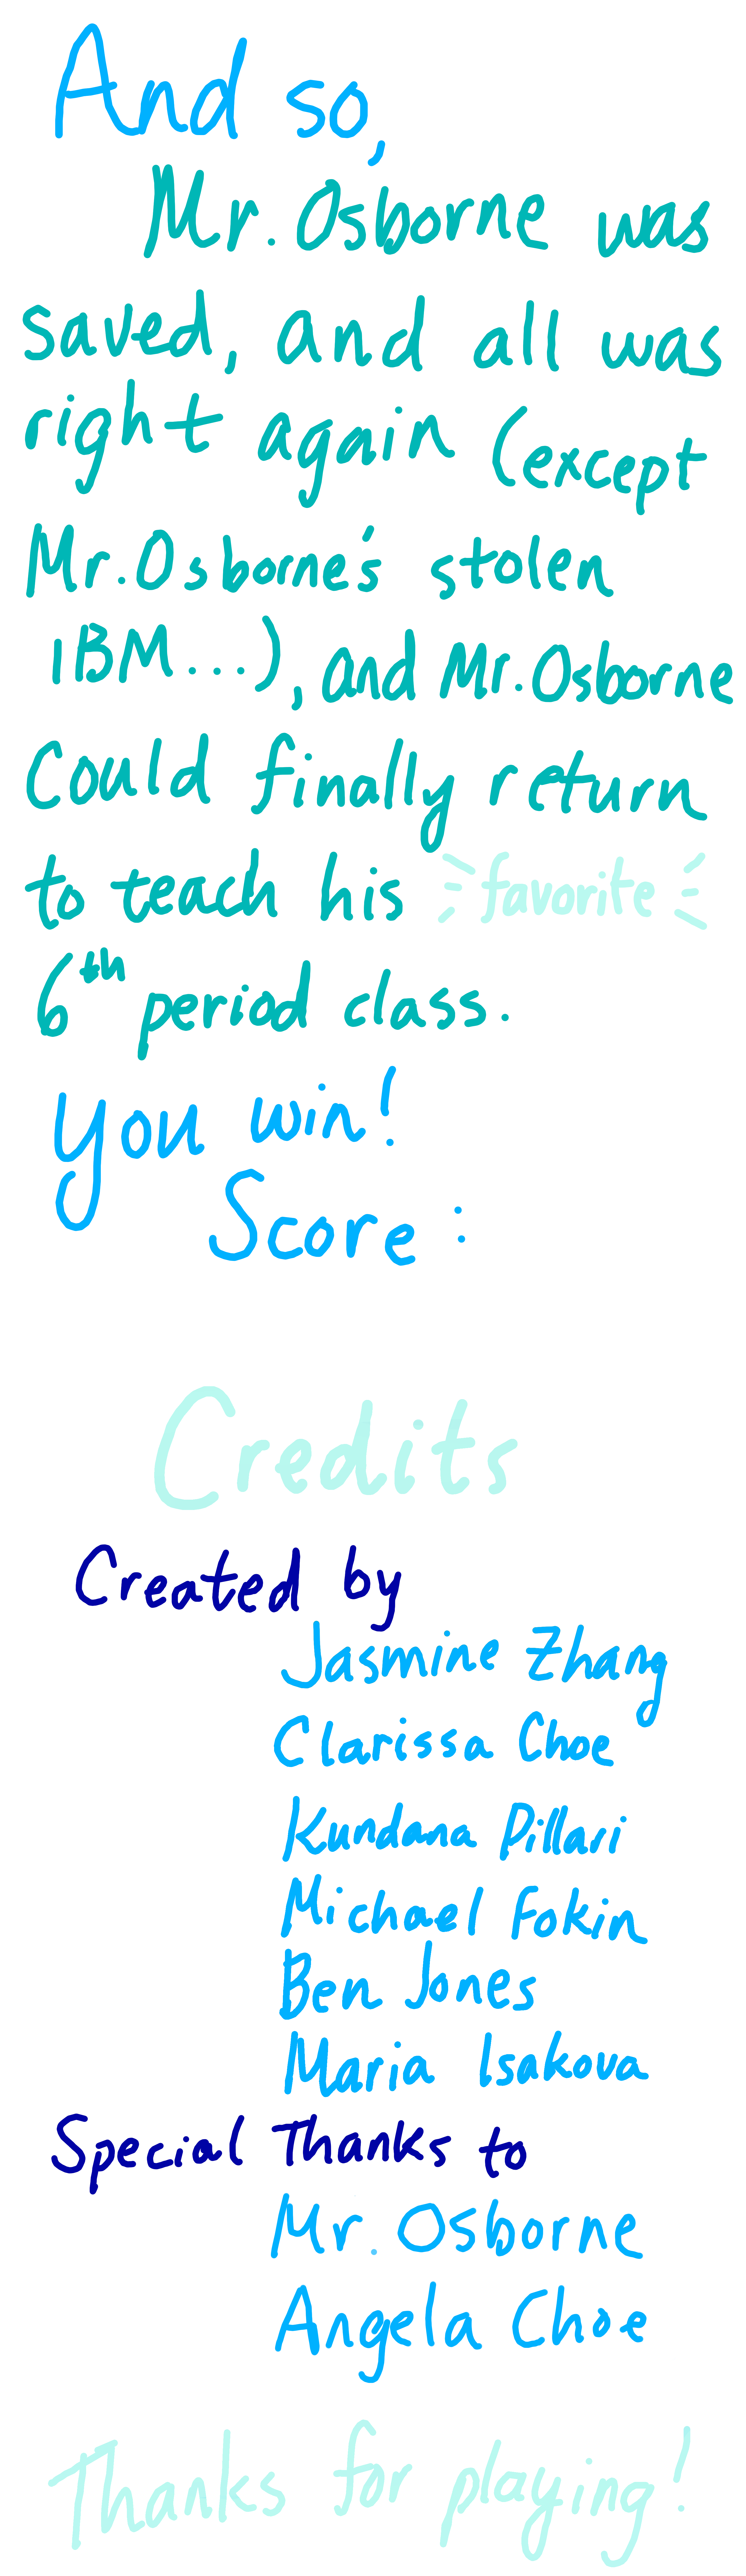 And so,
Mr. Osborne was
saved, and all was
right again (except
Mr. Osborne's stolen
IBM...), and Mr. Osborne
Could finally return
to teach his favorite
6th period class.
You win!
Score :
Credits
Created by
Jasmine Zhang
Clarissa Choe
Kundana Pillari
Michael Fokin
Ben Jones
Maria Isakova
Special Thanks to
Mr. Osborne
Angela Choe
Thanks for playing!